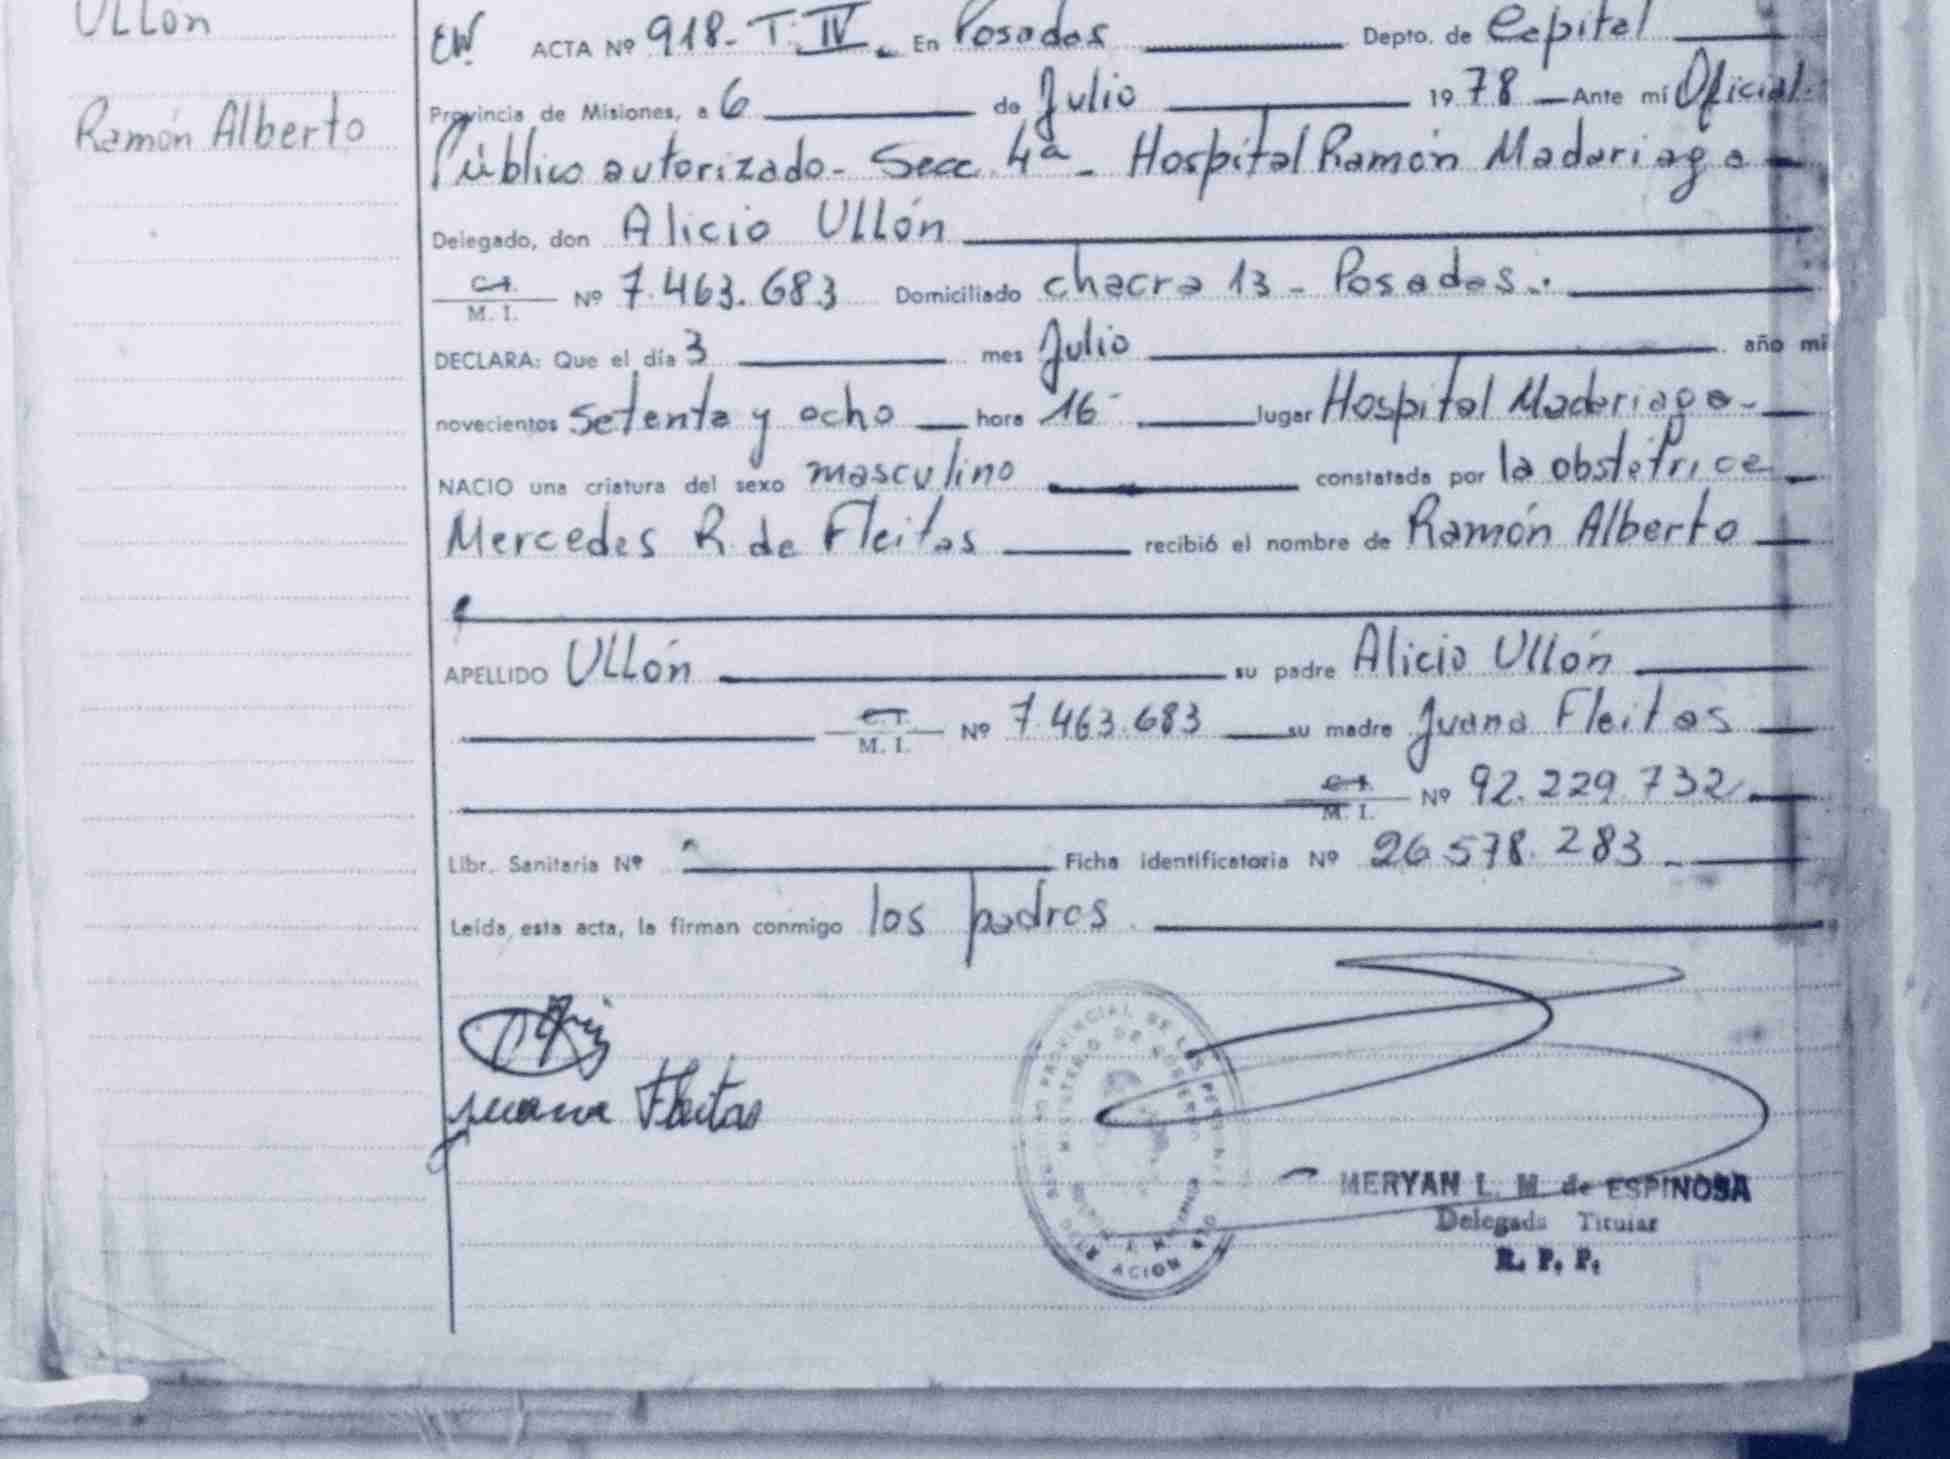 Ullón
Ramón Alberto
EW. ACTA Nº 918 - T. IV. En Posadas Depto. de Capital
Provincia de Misiones, a 6 de Julio 1978 Ante mí Oficial
Público autorizado - Secc. 4ª - Hospital Ramón Madariaga
Delegado, don Alicio Ullón
C.I.
M. I. Nº 7.463.683 Domiciliado chacra 13 - Posadas.
DECLARA: Que el día 3 mes Julio año mil
novecientos setenta y ocho hora 16 lugar Hospital Madariaga -
NACIO una criatura del sexo masculino constatada por la obstétrice
Mercedes R. de Fleitas recibió el nombre de Ramón Alberto
APELLIDO Ullón su padre Alicio Ullón
C.I.
M. I. Nº 7.463.683 su madre Juana Fleitas
C.I.
M. I. Nº 92.229.732
Libr. Sanitaria Nº Ficha identificatoria Nº 26.578.283
Leída esta acta, la firman conmigo los padres
Juana Fleitas
MERYAN L. M. de ESPINOSA
Delegada Titular
R. P. P.